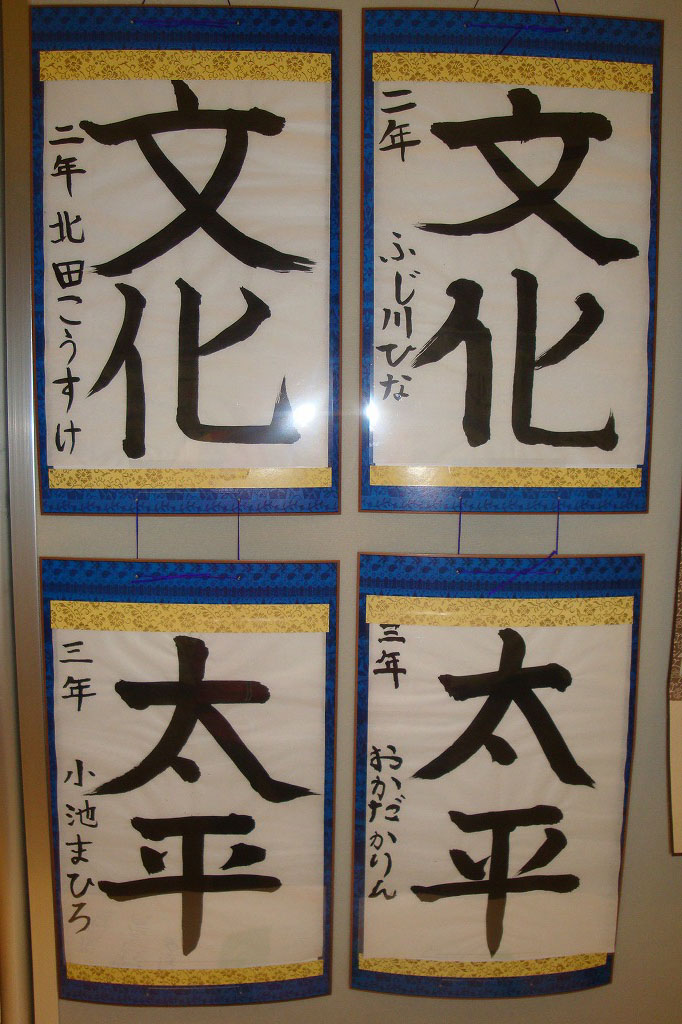 文化
二年 ふじ川ひな
文化
二年 北田こうすけ
太平
三年 おかだかりん
太平
三年 小池まひろ